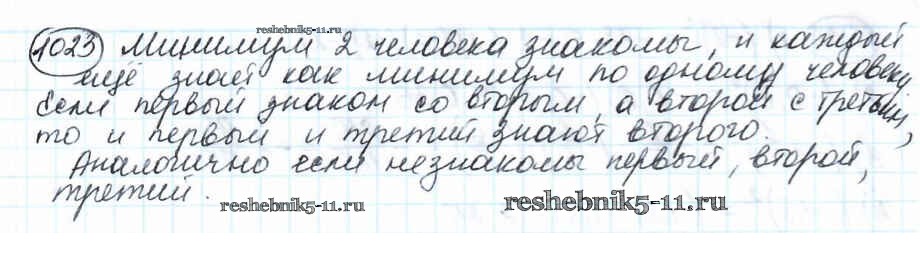 reshebnik5-11.ru
1023 Минимум 2 человека знакомы, и каждый
ещё знает как минимум по одному человеку.
Если первый знаком со вторым, а второй с третьим,
то и первый и третий знают второго.
Аналогично если незнакомы первый, второй,
третий.
reshebnik5-11.ru reshebnik5-11.ru